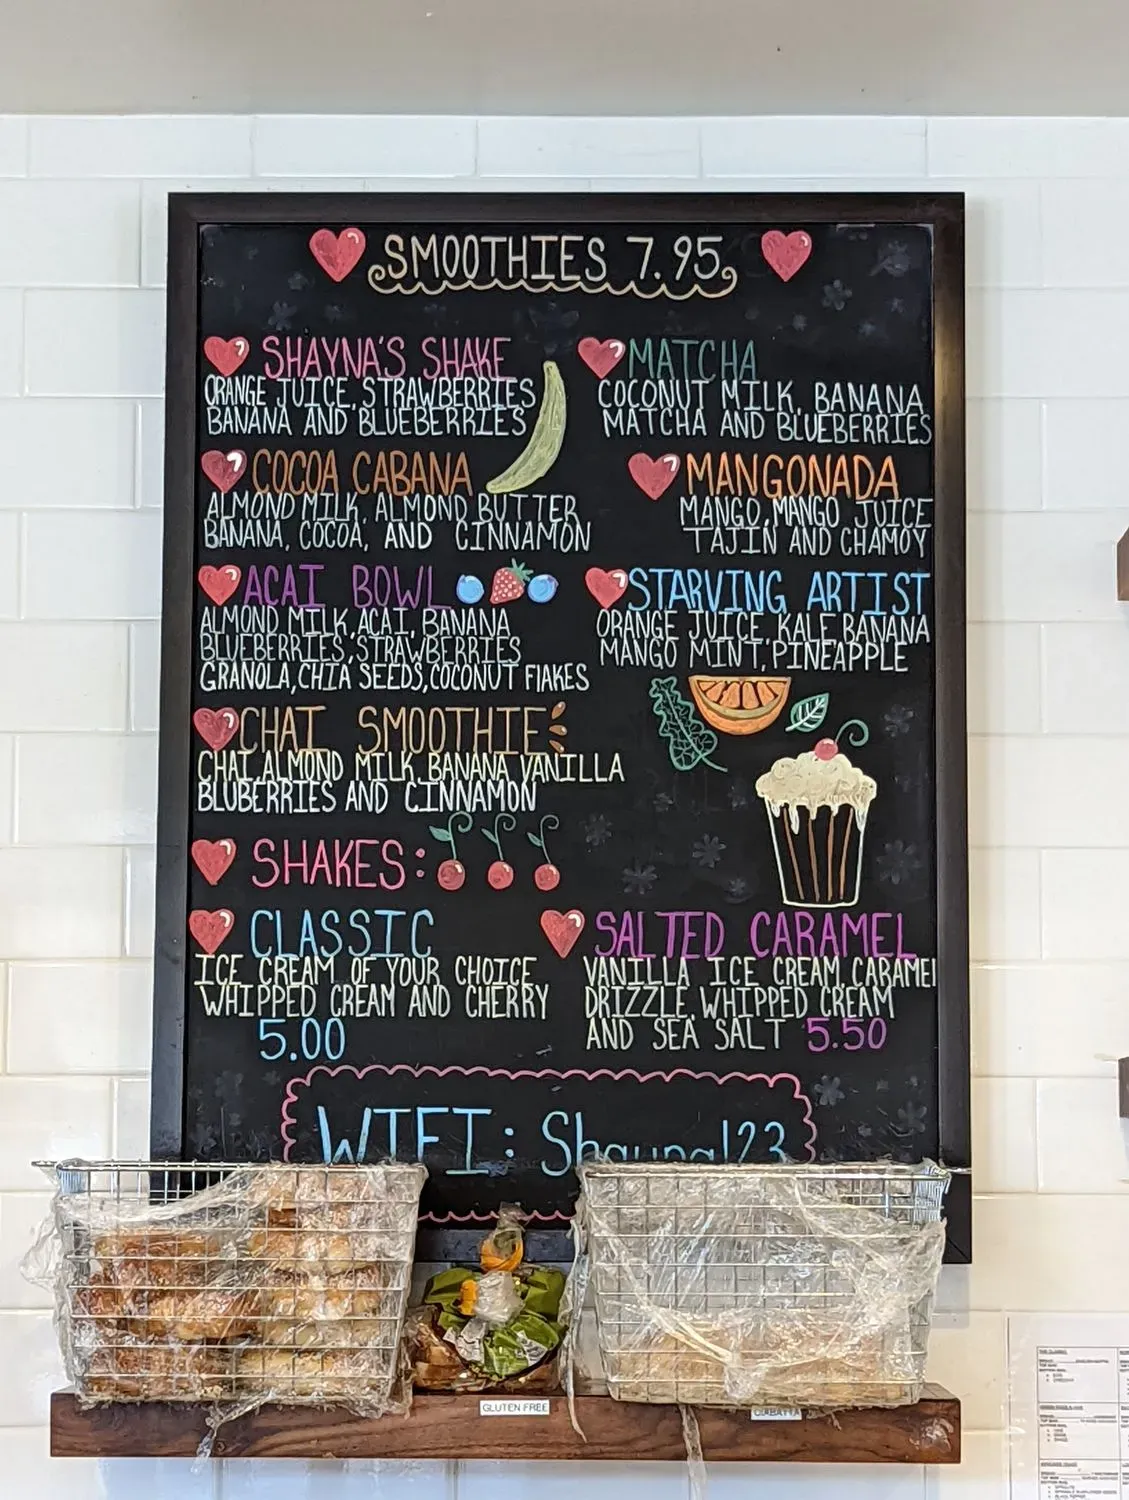 SMOOTHIES 7.95
SHAYNA'S SHAKE
ORANGE JUICE, STRAWBERRIES
BANANA AND BLUEBERRIES
COCOA CABANA
ALMOND MILK, ALMOND BUTTER
BANANA, COCOA, AND CINNAMON
ACAI BOWL
ALMOND MILK, ACAI, BANANA
BLUEBERRIES, STRAWBERRIES
GRANOLA, CHIA SEEDS, COCONUT FLAKES
CHAI SMOOTHIE
CHAI, ALMOND MILK, BANANA, VANILLA
BLUBERRIES AND CINNAMON
MATCHA
COCONUT MILK, BANANA
MATCHA AND BLUEBERRIES
MANGONADA
MANGO, MANGO JUICE
TAJIN AND CHAMOY
STARVING ARTIST
ORANGE JUICE, KALE, BANANA
MANGO MINT, PINEAPPLE
SHAKES:
CLASSIC
ICE CREAM OF YOUR CHOICE
WHIPPED CREAM AND CHERRY
5.00
SALTED CARAMEL
VANILLA ICE CREAM, CARAMEL
DRIZZLE, WHIPPED CREAM
AND SEA SALT 5.50
WIFI: Shayna123
GLUTEN FREE
CIABATTA